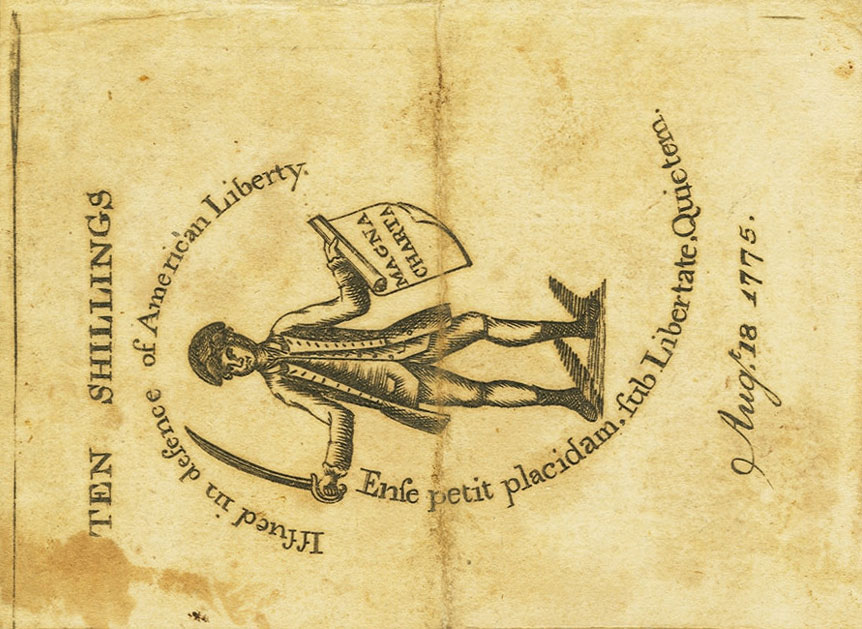 TEN SHILLINGS
Iſſued in defence of American Liberty.
MAGNA
CHARTA
Enſe petit placidam, ſub Libertate, Quietem.
Augſt. 18 1775.